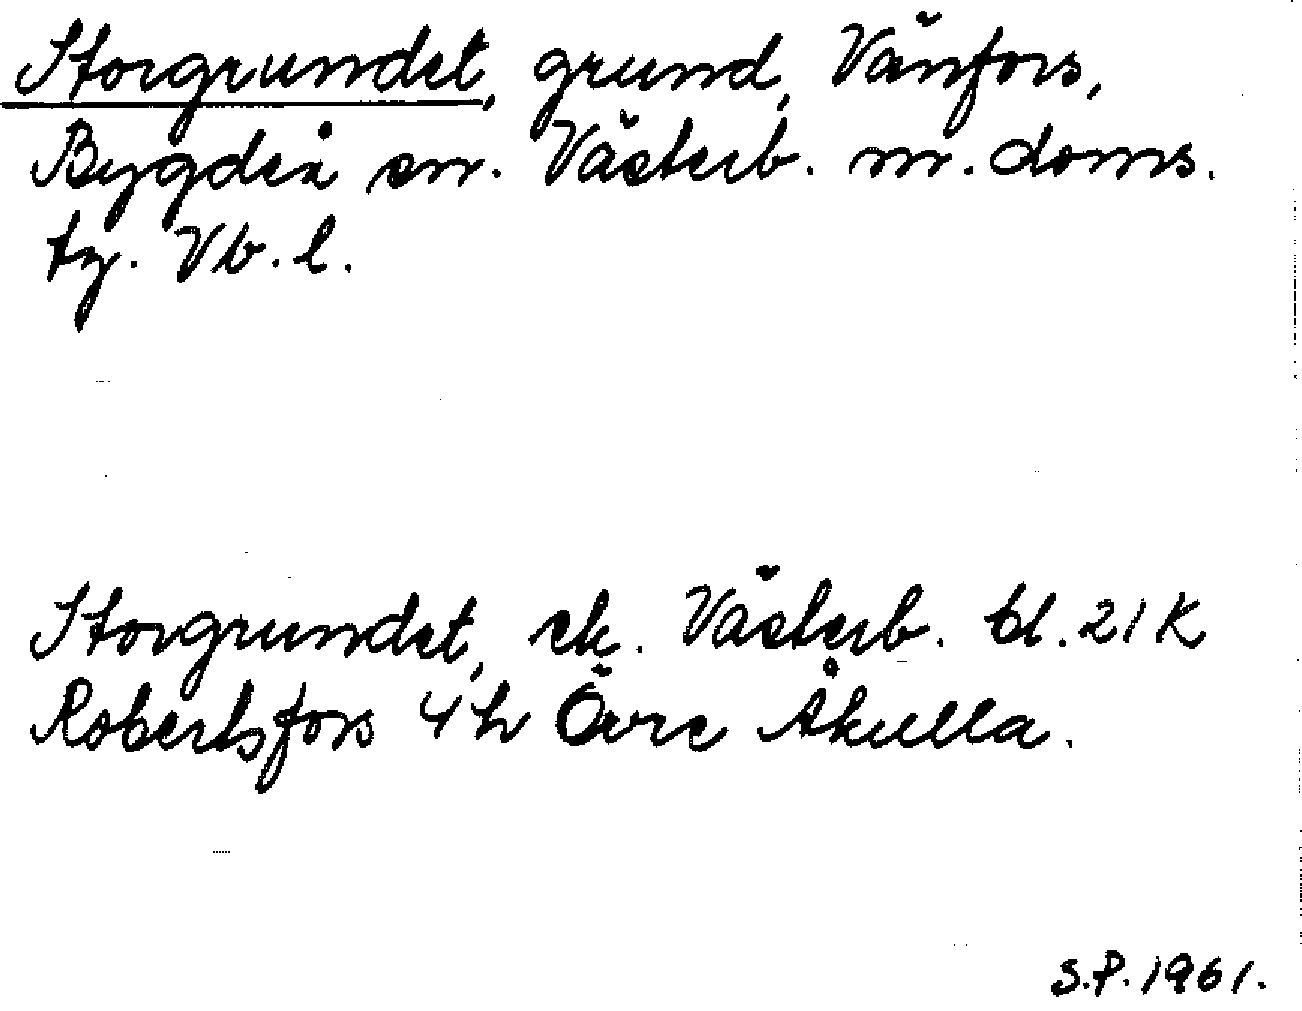 Storgrundet, grund, Vänfors,
Bygdeå sn. Västerb. n. doms.
tg. Vb. l.
Storgrundet, ek. Västerb. bl. 21 K
Robertsfors 4 h Övre Åkulla.
S.P. 1961.